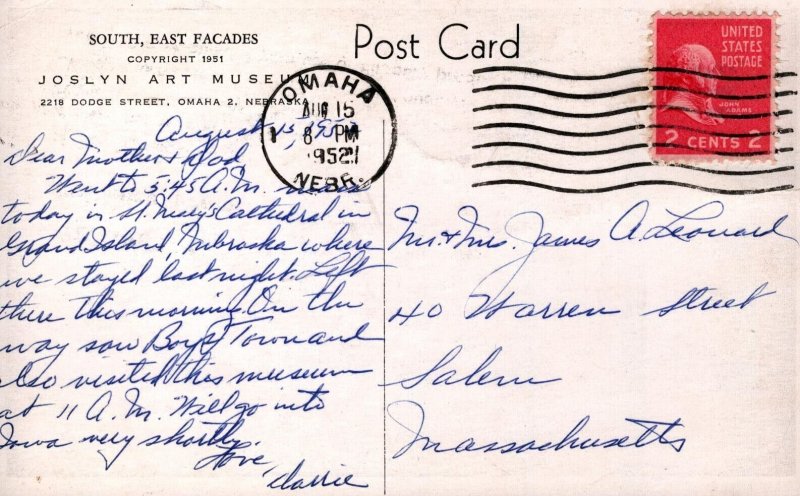 SOUTH, EAST FACADES
COPYRIGHT 1951
JOSLYN ART MUSEUM
2218 DODGE STREET, OMAHA 2, NEBRASKA
Post Card
UNITED
STATES
POSTAGE
JOHN
ADAMS
2 CENTS 2
OMAHA
AUG 15
8 PM
1952
NEBR.
August 15, 1952
Dear Mother & Dad
Went to 5:45 A.M. mass
today in St. Mary's Cathedral in
Grand Island, Nebraska where
we stayed last night. Left
there this morning. On the
way saw Boys Town and
also visited this museum
at 11 A.M. Will go into
Iowa very shortly.
Love,
Mr. & Mrs. James A. Leonard
40 Warren Street
Salem
Massachusetts